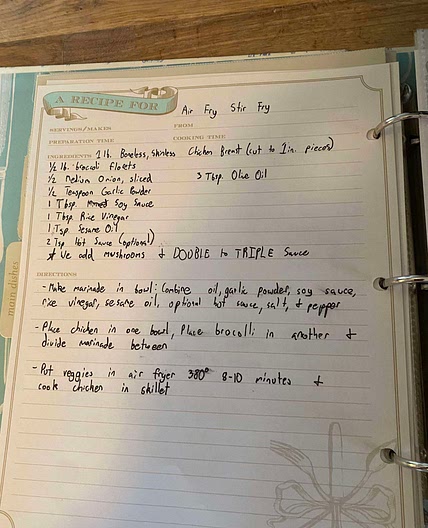 A RECIPE FOR
Air Fry Stir Fry
SERVINGS/MAKES FROM
PREPARATION TIME COOKING TIME
INGREDIENTS 1 lb. Boneless, Skinless Chicken Breast (cut to 1 in. pieces)
1/2 lb. brocoli florets 3 Tbsp. Olive Oil
1/2 medium Onion, sliced
1/2 Teaspoon Garlic Powder
1 Tbsp. Soy Sauce
1 Tbsp. Rice Vinegar
1 Tsp Sesame Oil
2 Tsp Hot Sauce (optional)
* We add mushrooms & DOUBLE to TRIPLE Sauce
DIRECTIONS
- Make marinade in bowl: Combine oil, garlic powder, soy sauce,
rice vinegar, sesame oil, optional hot sauce, salt, & pepper
- Place chicken in one bowl, Place brocolli in another &
divide marinade between
- Put veggies in air fryer 380° 8-10 minutes &
cook chicken in skillet
main dishes